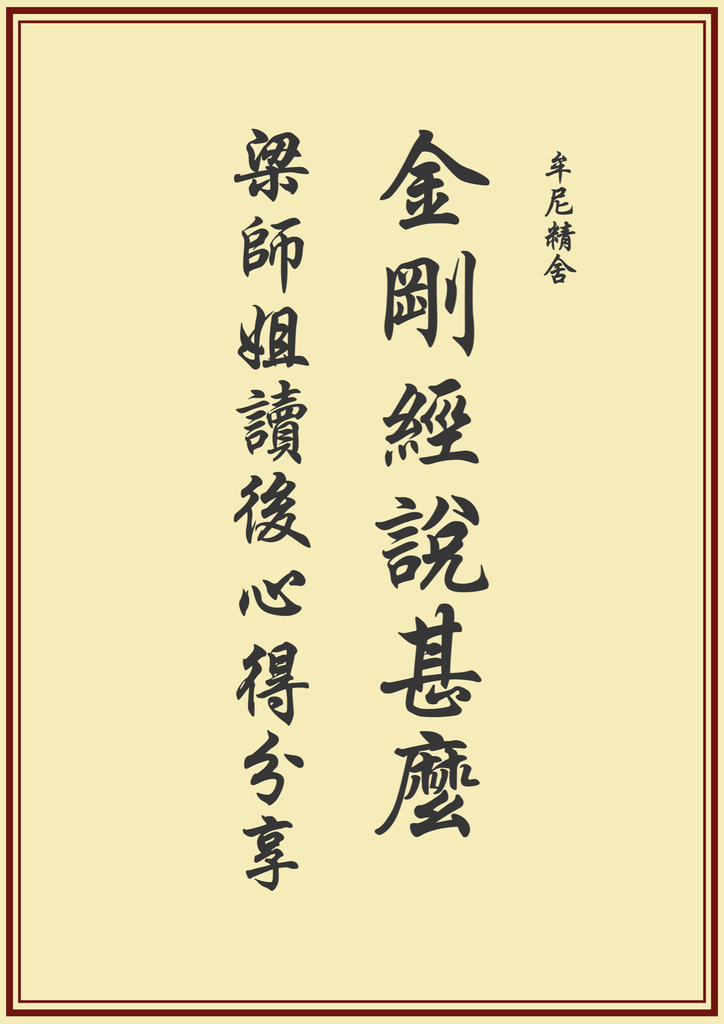 牟尼精舍
金剛經說甚麼
梁師姐讀後心得分享